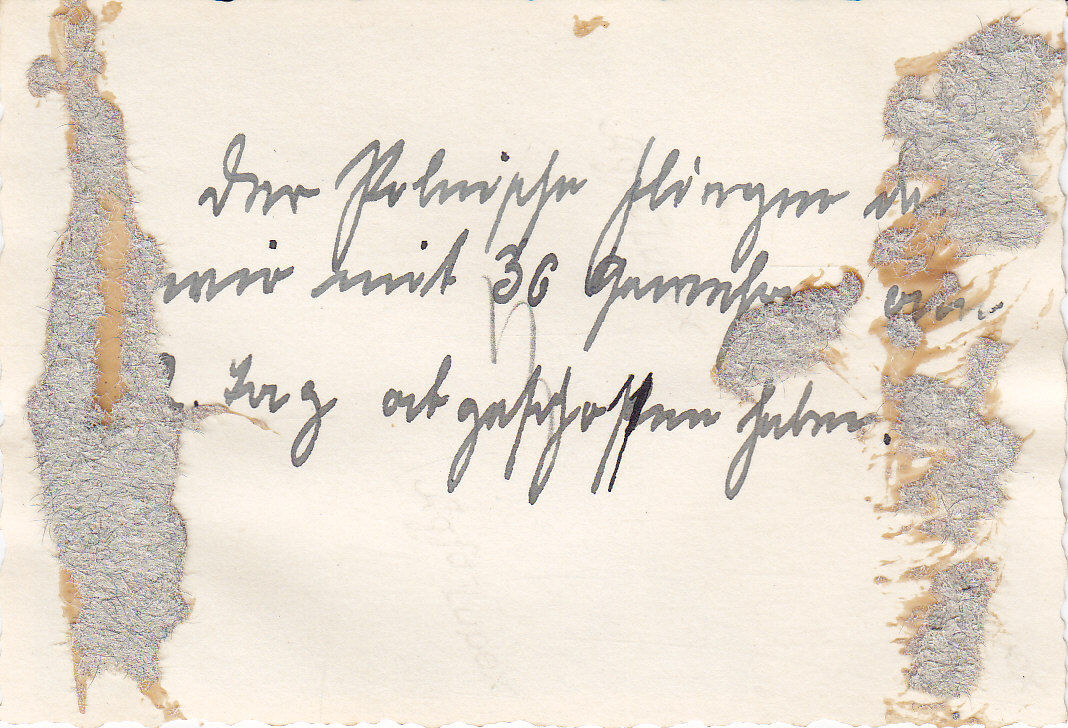 Der Polnische Flieger de
wir mit 36 Gewehre am
2. Tag abgeschossen haben.